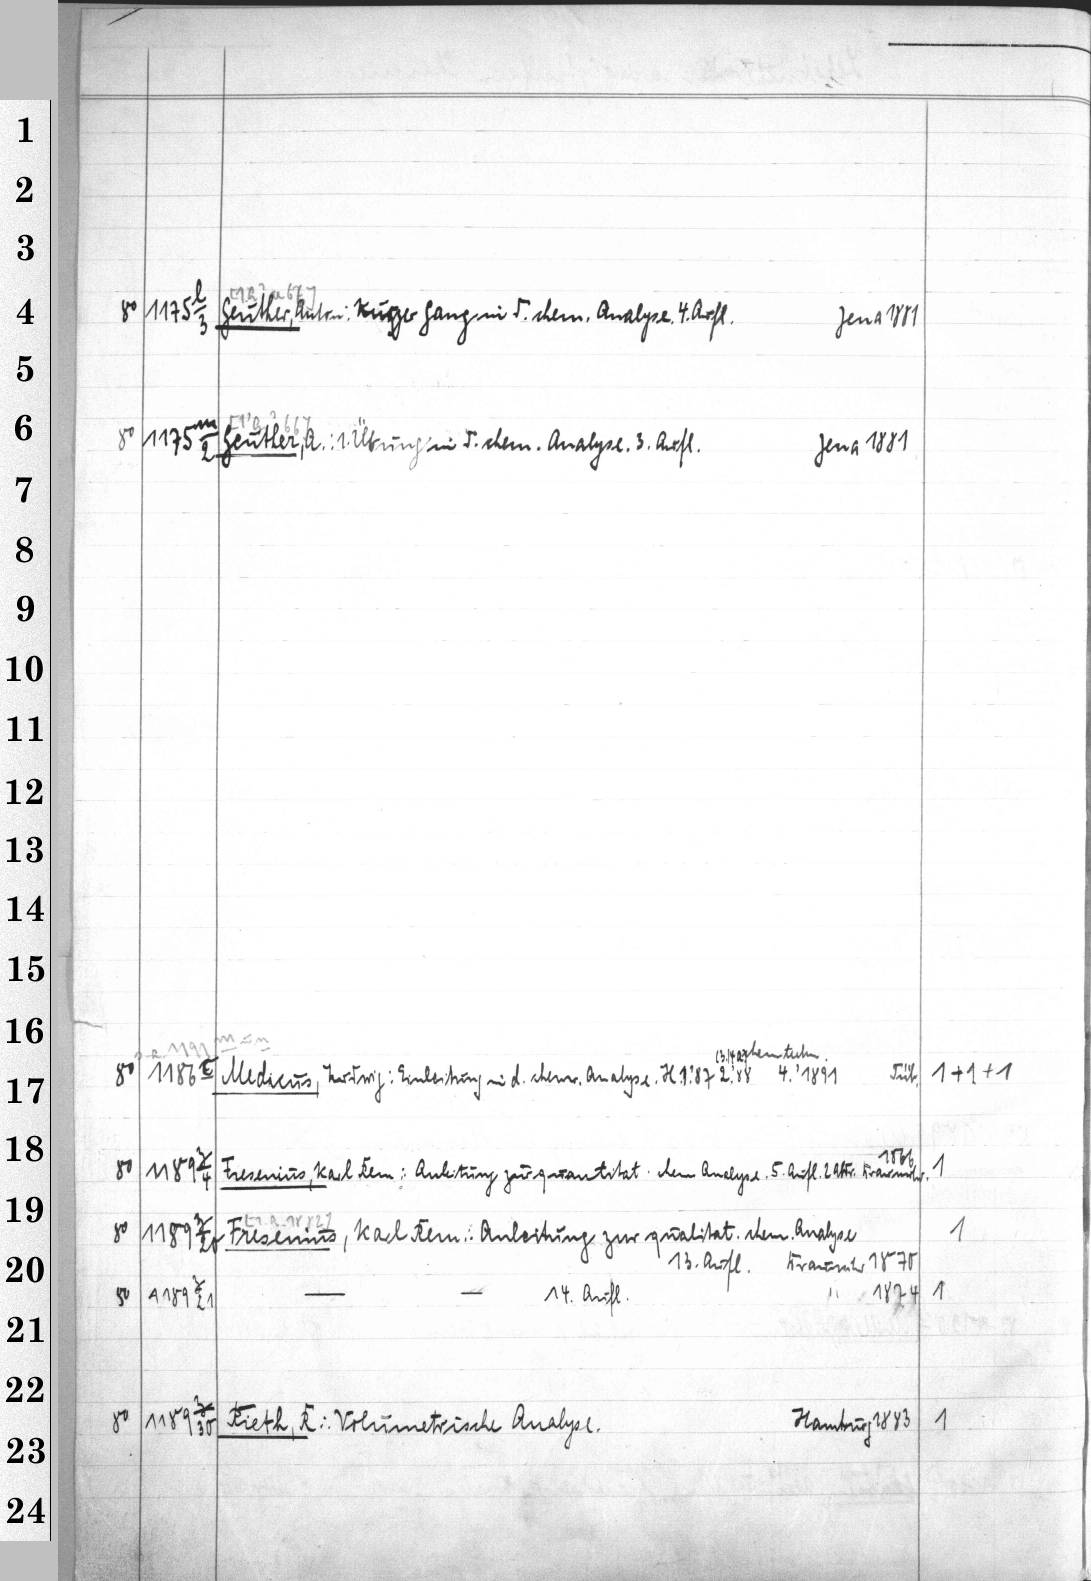 1
2
3
4
5
6
7
8
9
10
11
12
13
14
15
16
17
18
19
20
21
22
23
24
8° 1175 l/3 Geuther, Anton: Kurzer Gang in d. chem. Analyse. 4. Aufl. Jena 1881
8° 1175 m/2 Geuther, A.: 1. Übung in d. chem. Analyse. 3. Aufl. Jena 1881
8° 1186 Medicus, Ludwig: Einleitung in d. chem. Analyse. H 1.'87 2.'88 4.'1891 Tüb. 1+1+1
8° 1189 Fresenius, Karl Rem.: Anleitung zur quantitat. chem Analyse. 5. Aufl. 1866 1
8° 1189 Fresenius, Karl Rem.: Anleitung zur qualitat. chem. Analyse 1
13. Aufl. 1870
8° 1189 z/21 — — 14. Aufl. " 1874 1
8° 1189 z/30 Rieth, R.: Volumetrische Analyse. Hamburg 1883 1